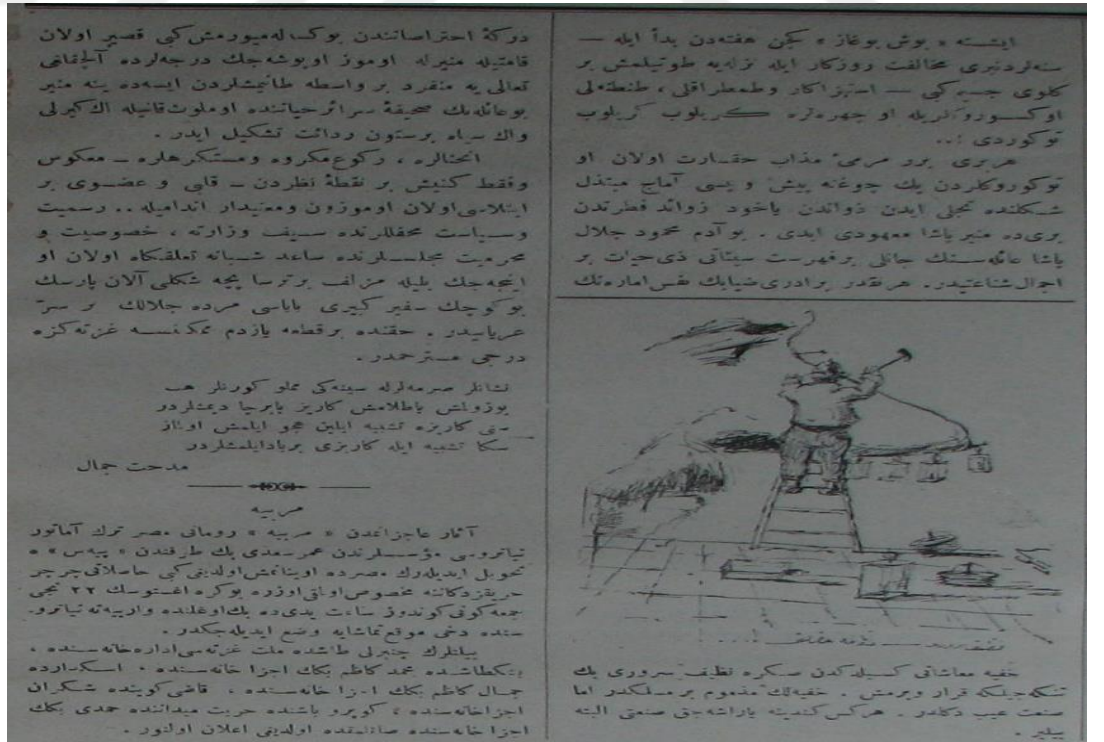 ایشته « بوش بوغاز » كچن هفته‌دن بدأ ایله —
سنه‌لردنبری مخالفت روزكار ایله نزله‌یه طوتیلمش بر
كلوی جسیم كبی — استهزاكار وطمطراقلی ، طنطنه‌لی
اوكسوروكلریله او چهره‌لره
توكوردی ! ..
هر بری برر مرمئ مذاب حقارت اولان او
توكوروكلردن پك چوغنه پیش و پسی آماج مبتذل
شكلنده تجلی ایدن ذواتدن یاخود زوائد فطرتدن
بری‌ده منیر پاشا معهودی ایدی . بو آدم محمود جلال
پاشا عائله‌سنك جانلی بر فهرست سیئاتی ذی حیات بر
اجمال شناعتیدر . هر نقدر برادری ضیابك نفس اماره‌نك
خفیه معاشاتی كسیلدكدن صكره نظیف سروری بك
تنكه‌جیلكه قرار ویرمش . خفیه‌لك مذموم بر مسلكدر اما
صنعت عیب دكلدر . هركس كندینه یاراشه‌جق صنعتی البته
بیلیر .
دركهٔ احتراصاتندن یوكسله‌میورمش كبی قصیر اولان
قامتیله منیرله اوموز اوپوشه‌جك درجه‌لرده آلچقلغی
تعالی‌یه منفرد بر واسطه طانیمشلردن ایسه‌ده ینه منیر
بو عائله‌نك صحیفهٔ سرائر حیاتنده او ملوث قافیله اك كیرلی
واك سیاه بر ستون ردائت تشكیل ایدر .
انحنالره ، ركوع مكروه ومستكرهلره — معكوس
وفقط كنیش بر نقطهٔ نظردن — قلبی و عضوی بر
ابتلاسی اولان او موزون ومعنیدار اندامیله .. رسمیت
وسیاست محفللرنده سیف وزارته ، خصوصیت و
محرمیت مجلسلرنده ساعد شبانه تعلیقكاه اولان او
اینجه‌جك بلیله مزلف بر ترسا پچه شكلی آلان پارسك
بو كوچك سفیر كبیری باباسی مرده جلالك بر سر
عریانیدر . حقنده بر قطعه یازدم ممكنسه غزته‌كزه
درجی مسترحمدر .
نشانلر صرمه‌لرله سینه‌كی مملو كورنلر هپ
یوزولمش یاطلامش كاریز پاپرجا دیمشلردر
سنی كاریزه تشبیه ایلین هجو ایلمش اولماز
سكا تشبیه ایله كاریزی بربادایلمشلردر
مدحت جمال
مربیه
آثار عاجزانه‌مدن « مربیه » رومانی مصر ترك آماتور
تیاتروسی مؤسسلرندن عمر سعدی بك طرفندن « پیه‌س » ه
تحویل ایدیله‌رك مصرده اوینانمش اولدیغی كبی حاصلاتی چرچر
حریقزدكاننه مخصوص اولمق اوزره بو كره اغستوسك ٢٢ نجی
جمعه كونی كوندوز ساعت یدی‌ده بك اوغلنده واریه‌ته تیاترو
سنده دخی موقع تماشایه وضع ایدیله‌جكدر .
بیلتلرك چنبرلی طاشده ملت غزته‌سی اداره‌خانه‌سنده ،
بشكطاشده محمد كاظم بكك اجزا خانه‌سنده ، اسكدارده
جمال كاظم بكك اجزا خانه‌سنده ، قاضی كوینده شكران
اجزا خانه‌سنده ، كوپرو باشنده حریت میداننده حمدی بكك
اجزا خانه‌سنده صاتلمقده اولدیغی اعلان اولنور .